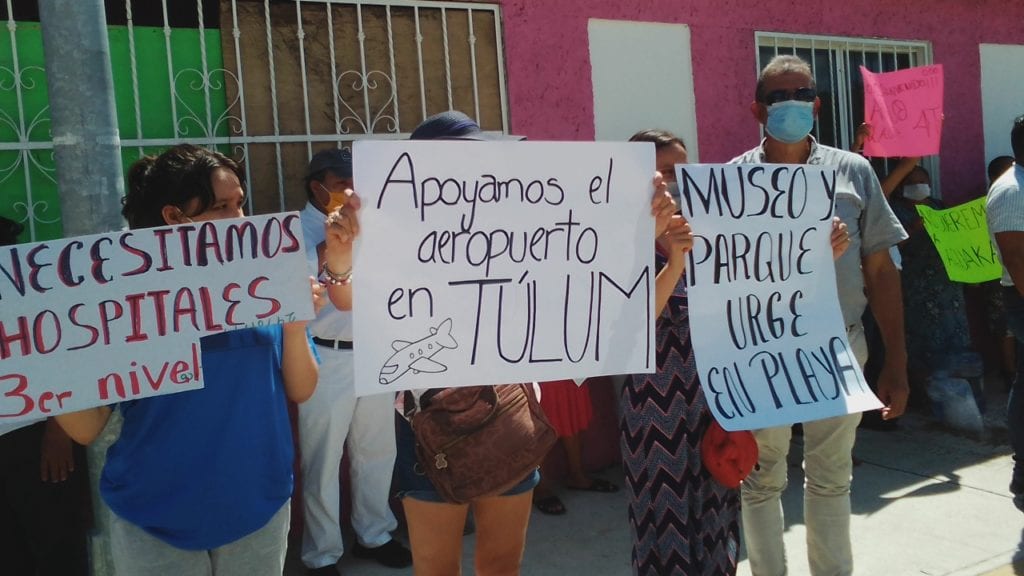 NECESITAMOS
HOSPITALES
3er nivel
Apoyamos el
aeropuerto
en TÚLUM
MUSEO Y
PARQUE
URGE
EN PLAYA
QUEREMOS